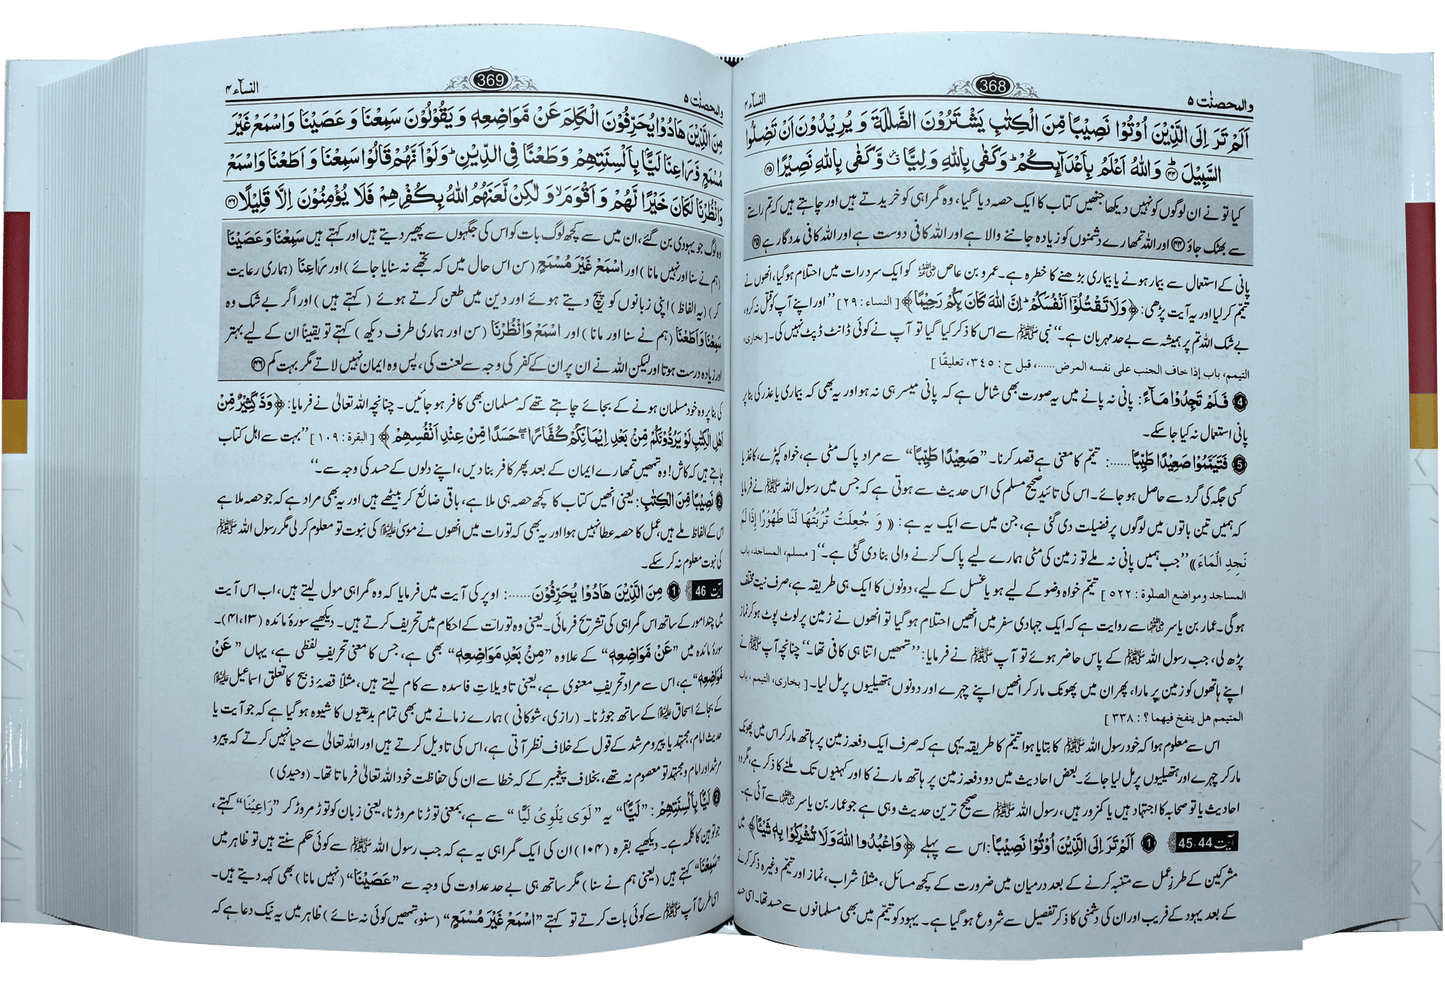 والمحصنٰت ۵
368
النساء ۴
اَلَمْ تَرَ اِلَى الَّذِيْنَ اُوْتُوْا نَصِيْبًا مِّنَ الْكِتٰبِ يَشْتَرُوْنَ الضَّلٰلَةَ وَ يُرِيْدُوْنَ اَنْ تَضِلُّوا
السَّبِيْلَ ؕ﴿۴۴﴾ وَ اللّٰهُ اَعْلَمُ بِاَعْدَآىِٕكُمْ ؕ وَ كَفٰى بِاللّٰهِ وَلِيًّا ۙ٘ وَّ كَفٰى بِاللّٰهِ نَصِيْرًا ﴿۴۵﴾
کیا تو نے ان لوگوں کو نہیں دیکھا جنھیں کتاب کا ایک حصہ دیا گیا، وہ گمراہی کو خریدتے ہیں اور چاہتے ہیں کہ تم راستے
سے بھٹک جاؤ ﴿۴۴﴾ اور اللہ تمھارے دشمنوں کو زیادہ جاننے والا ہے اور اللہ کافی دوست ہے اور اللہ کافی مددگار ہے ﴿۴۵﴾
پانی کے استعمال سے بیمار ہونے یا بیماری بڑھنے کا خطرہ ہے۔ عمرو بن عاص رضی اللہ عنہ کو ایک سرد رات میں احتلام ہو گیا، انھوں نے
تیمم کر لیا اور یہ آیت پڑھی: ﴿وَ لَا تَقْتُلُوْۤا اَنْفُسَكُمْ ؕ اِنَّ اللّٰهَ كَانَ بِكُمْ رَحِيْمًا﴾ [ النساء : ۲۹ ] ”اور اپنے آپ کو قتل نہ کرو،
بے شک اللہ تم پر ہمیشہ سے بے حد مہربان ہے۔“ نبی ﷺ سے اس کا ذکر کیا گیا تو آپ نے کوئی ڈانٹ ڈپٹ نہیں کی۔ [ بخاری،
التیمم، باب إذا خاف الجنب علی نفسه المرض......، قبل ح : ۳۴۵، تعلیقًا ]
4 فَلَمْ تَجِدُوْا مَآءً: پانی نہ پانے میں یہ صورت بھی شامل ہے کہ پانی میسر ہی نہ ہو اور یہ بھی کہ بیماری یا عذر کی بنا پر
پانی استعمال نہ کیا جا سکے۔
5 فَتَيَمَّمُوْا صَعِيْدًا طَيِّبًا......: تیمم کا معنی ہے قصد کرنا۔ ”صَعِيْدًا طَيِّبًا“ سے مراد پاک مٹی ہے، خواہ کپڑے، کاغذ یا
کسی جگہ کی گرد سے حاصل ہو جائے۔ اس کی تائید صحیح مسلم کی اس حدیث سے ہوتی ہے کہ جس میں رسول اللہ ﷺ نے فرمایا
کہ ہمیں تین باتوں میں لوگوں پر فضیلت دی گئی ہے، جن میں سے ایک یہ ہے: « وَ جُعِلَتْ تُرْبَتُهَا لَنَا طَهُوْرًا إِذَا لَمْ
نَجِدِ الْمَاءَ » ”جب ہمیں پانی نہ ملے تو زمین کی مٹی ہمارے لیے پاک کرنے والی بنا دی گئی ہے۔“ [ مسلم، المساجد، باب
المساجد ومواضع الصلوة : ۵۲۲ ] تیمم خواہ وضو کے لیے ہو یا غسل کے لیے، دونوں کا ایک ہی طریقہ ہے، صرف نیت مختلف
ہوگی۔ عمار بن یاسر رضی اللہ عنہ سے روایت ہے کہ ایک جہادی سفر میں انھیں احتلام ہو گیا تو انھوں نے زمین پر لوٹ پوٹ ہو کر نماز
پڑھ لی، جب رسول اللہ ﷺ کے پاس حاضر ہوئے تو آپ ﷺ نے فرمایا: ”تمھیں اتنا ہی کافی تھا۔“ چنانچہ آپ ﷺ نے
اپنے ہاتھوں کو زمین پر مارا، پھر ان میں پھونک مار کر انھیں اپنے چہرے اور دونوں ہتھیلیوں پر مل لیا۔ [ بخاری، التیمم ، باب
المتیمم هل ینفخ فیهما ؟ : ۳۳۸ ]
اس سے معلوم ہوا کہ خود رسول اللہ ﷺ کا بتایا ہوا تیمم کا طریقہ یہی ہے کہ صرف ایک دفعہ زمین پر ہاتھ مار کر اس میں پھونک
مار کر چہرے اور ہتھیلیوں پر مل لیا جائے۔ بعض احادیث میں دو دفعہ زمین پر ہاتھ مارنے کا اور کہنیوں تک ملنے کا ذکر ہے، مگر وہ
احادیث یا تو صحابہ کا اجتہاد ہیں یا کمزور ہیں، رسول اللہ ﷺ سے صحیح ترین حدیث وہی ہے جو عمار بن یاسر رضی اللہ عنہ سے آئی ہے۔
آیت 44۔45 1 اَلَمْ تَرَ اِلَى الَّذِيْنَ اُوْتُوْا نَصِيْبًا: اس سے پہلے ﴿وَ اعْبُدُوا اللّٰهَ وَ لَا تُشْرِكُوْا بِهٖ شَيْـًٔا﴾ میں
مشرکین کے طرزِ عمل سے متنبہ کرنے کے بعد درمیان میں ضرورت کے کچھ مسائل، مثلاً شراب، نماز اور تیمم وغیرہ ذکر کرنے
کے بعد یہود کے فریب اور ان کی دشمنی کا ذکر تفصیل سے شروع ہو گیا ہے۔ یہود کو تیمم میں بھی مسلمانوں سے حسد تھا۔ اسی حسد
والمحصنٰت ۵
369
النساء ۴
مِنَ الَّذِيْنَ هَادُوْا يُحَرِّفُوْنَ الْكَلِمَ عَنْ مَّوَاضِعِهٖ وَ يَقُوْلُوْنَ سَمِعْنَا وَ عَصَيْنَا وَ اسْمَعْ غَيْرَ
مُسْمَعٍ وَّ رَاعِنَا لَيًّۢا بِاَلْسِنَتِهِمْ وَ طَعْنًا فِى الدِّيْنِ ؕ وَ لَوْ اَنَّهُمْ قَالُوْا سَمِعْنَا وَ اَطَعْنَا وَ اسْمَعْ
وَ انْظُرْنَا لَكَانَ خَيْرًا لَّهُمْ وَ اَقْوَمَ ۙ وَ لٰكِنْ لَّعَنَهُمُ اللّٰهُ بِكُفْرِهِمْ فَلَا يُؤْمِنُوْنَ اِلَّا قَلِيْلًا ﴿۴۶﴾
وہ لوگ جو یہودی بن گئے، ان میں سے کچھ لوگ بات کو اس کی جگہوں سے پھیر دیتے ہیں اور کہتے ہیں سَمِعْنَا وَ عَصَيْنَا
(ہم نے سنا اور نہیں مانا) اور اسْمَعْ غَيْرَ مُسْمَعٍ (سن اس حال میں کہ تجھے نہ سنایا جائے) اور رَاعِنَا (ہماری رعایت
کر) (یہ الفاظ) اپنی زبانوں کو پیچ دیتے ہوئے اور دین میں طعن کرتے ہوئے (کہتے ہیں) اور اگر بے شک وہ
سَمِعْنَا وَ اَطَعْنَا (ہم نے سنا اور مانا) اور اسْمَعْ وَ انْظُرْنَا (سن اور ہماری طرف دیکھ) کہتے تو یقیناً ان کے لیے بہتر
اور زیادہ درست ہوتا اور لیکن اللہ نے ان پر ان کے کفر کی وجہ سے لعنت کی، پس وہ ایمان نہیں لاتے مگر بہت کم ﴿۴۶﴾
کی بنا پر وہ خود مسلمان ہونے کے بجائے چاہتے تھے کہ مسلمان بھی کافر ہو جائیں۔ چنانچہ اللہ تعالیٰ نے فرمایا: ﴿وَدَّ كَثِيْرٌ مِّنْ
اَهْلِ الْكِتٰبِ لَوْ يَرُدُّوْنَكُمْ مِّنْۢ بَعْدِ اِيْمَانِكُمْ كُفَّارًا ۖۚ حَسَدًا مِّنْ عِنْدِ اَنْفُسِهِمْ﴾ [ البقرة : ۱۰۹ ] ”بہت سے اہل کتاب
چاہتے ہیں کہ کاش! وہ تمھیں تمھارے ایمان کے بعد پھر کافر بنا دیں، اپنے دلوں کے حسد کی وجہ سے۔“
2 نَصِيْبًا مِّنَ الْكِتٰبِ: یعنی انھیں کتاب کا کچھ حصہ ہی ملا ہے، باقی ضائع کر بیٹھے ہیں اور یہ بھی مراد ہے کہ جو حصہ ملا ہے
اس کے الفاظ ملے ہیں، عمل کا حصہ عطا نہیں ہوا اور یہ بھی کہ تورات میں انھوں نے موسیٰ علیہ السلام کی نبوت تو معلوم کر لی مگر رسول اللہ ﷺ
کی نبوت معلوم نہ کر سکے۔
آیت 46 1 مِنَ الَّذِيْنَ هَادُوْا يُحَرِّفُوْنَ......: اوپر کی آیت میں فرمایا کہ وہ گمراہی مول لیتے ہیں، اب اس آیت
میں چند امور کے ساتھ اس گمراہی کی تشریح فرمائی۔ یعنی وہ تورات کے احکام میں تحریف کرتے ہیں۔ دیکھیے سورۂ مائدہ (۱۳، ۴۱)۔
سورۂ مائدہ میں ”عَنْ مَّوَاضِعِهٖ“ کے علاوہ ”مِنْۢ بَعْدِ مَوَاضِعِهٖ“ بھی ہے، جس کا معنی تحریفِ لفظی ہے، یہاں ”عَنْ
مَّوَاضِعِهٖ“ ہے، اس سے مراد تحریف معنوی ہے، یعنی تاویلاتِ فاسدہ سے کام لیتے ہیں، مثلاً قصۂ ذبیح کا تعلق اسماعیل علیہ السلام
کے بجائے اسحاق علیہ السلام کے ساتھ جوڑنا۔ (رازی، شوکانی) ہمارے زمانے میں بھی تمام بدعتیوں کا شیوہ ہو گیا ہے کہ جو آیت یا
حدیث امام، مجتہد یا پیر و مرشد کے قول کے خلاف نظر آتی ہے، اس کی تاویل کرتے ہیں اور اللہ تعالیٰ سے حیا نہیں کرتے کہ پیر و
مرشد اور امام و مجتہد تو معصوم نہ تھے، بخلاف پیغمبر کے کہ خطا سے ان کی حفاظت خود اللہ تعالیٰ فرماتا تھا۔ (وحیدی)
2 لَيًّۢا بِاَلْسِنَتِهِمْ: ”لَيًّا“ یہ ” لَوَى يَلْوِيْ لَيًّا “ سے ہے، بمعنی توڑنا مروڑنا، یعنی زبان کو توڑ مروڑ کر ”رَاعِيْنَا“ کہتے،
جو توہین کا کلمہ ہے۔ دیکھیے بقرہ (۱۰۴) ان کی ایک گمراہی یہ ہے کہ جب رسول اللہ ﷺ سے کوئی حکم سنتے ہیں تو ظاہر میں
”سَمِعْنَا“ کہتے ہیں (یعنی ہم نے سنا) مگر ساتھ ہی بے حد عداوت کی وجہ سے ”عَصَيْنَا“ (نہیں مانا) بھی کہہ دیتے ہیں۔
اسی طرح آپ ﷺ سے کوئی بات کرتے تو کہتے ”اسْمَعْ غَيْرَ مُسْمَعٍ“ (سنو، تمھیں کوئی نہ سنائے) ظاہر میں یہ نیک دعا ہے کہ